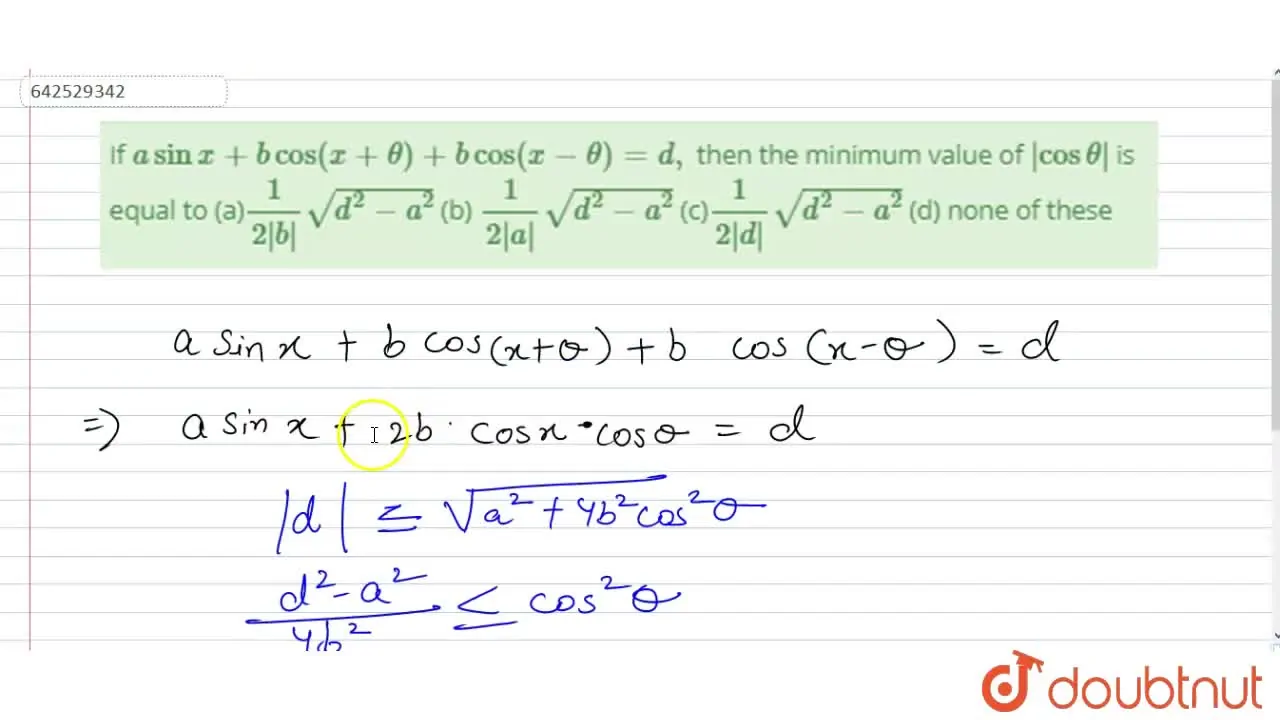 642529342
If a sin x + b cos(x + θ) + b cos(x − θ) = d, then the minimum value of |cos θ| is
equal to (a) 1/2|b| √(d² − a²) (b) 1/2|a| √(d² − a²) (c) 1/2|d| √(d² − a²) (d) none of these
a sin x + b cos(x+θ) + b cos(x−θ) = d
⇒) a sin x + 2b · cos x · cos θ = d
|d| ≤ √(a² + 4b² cos² θ)
(d² − a²)/4b² ≤ cos² θ
doubtnut